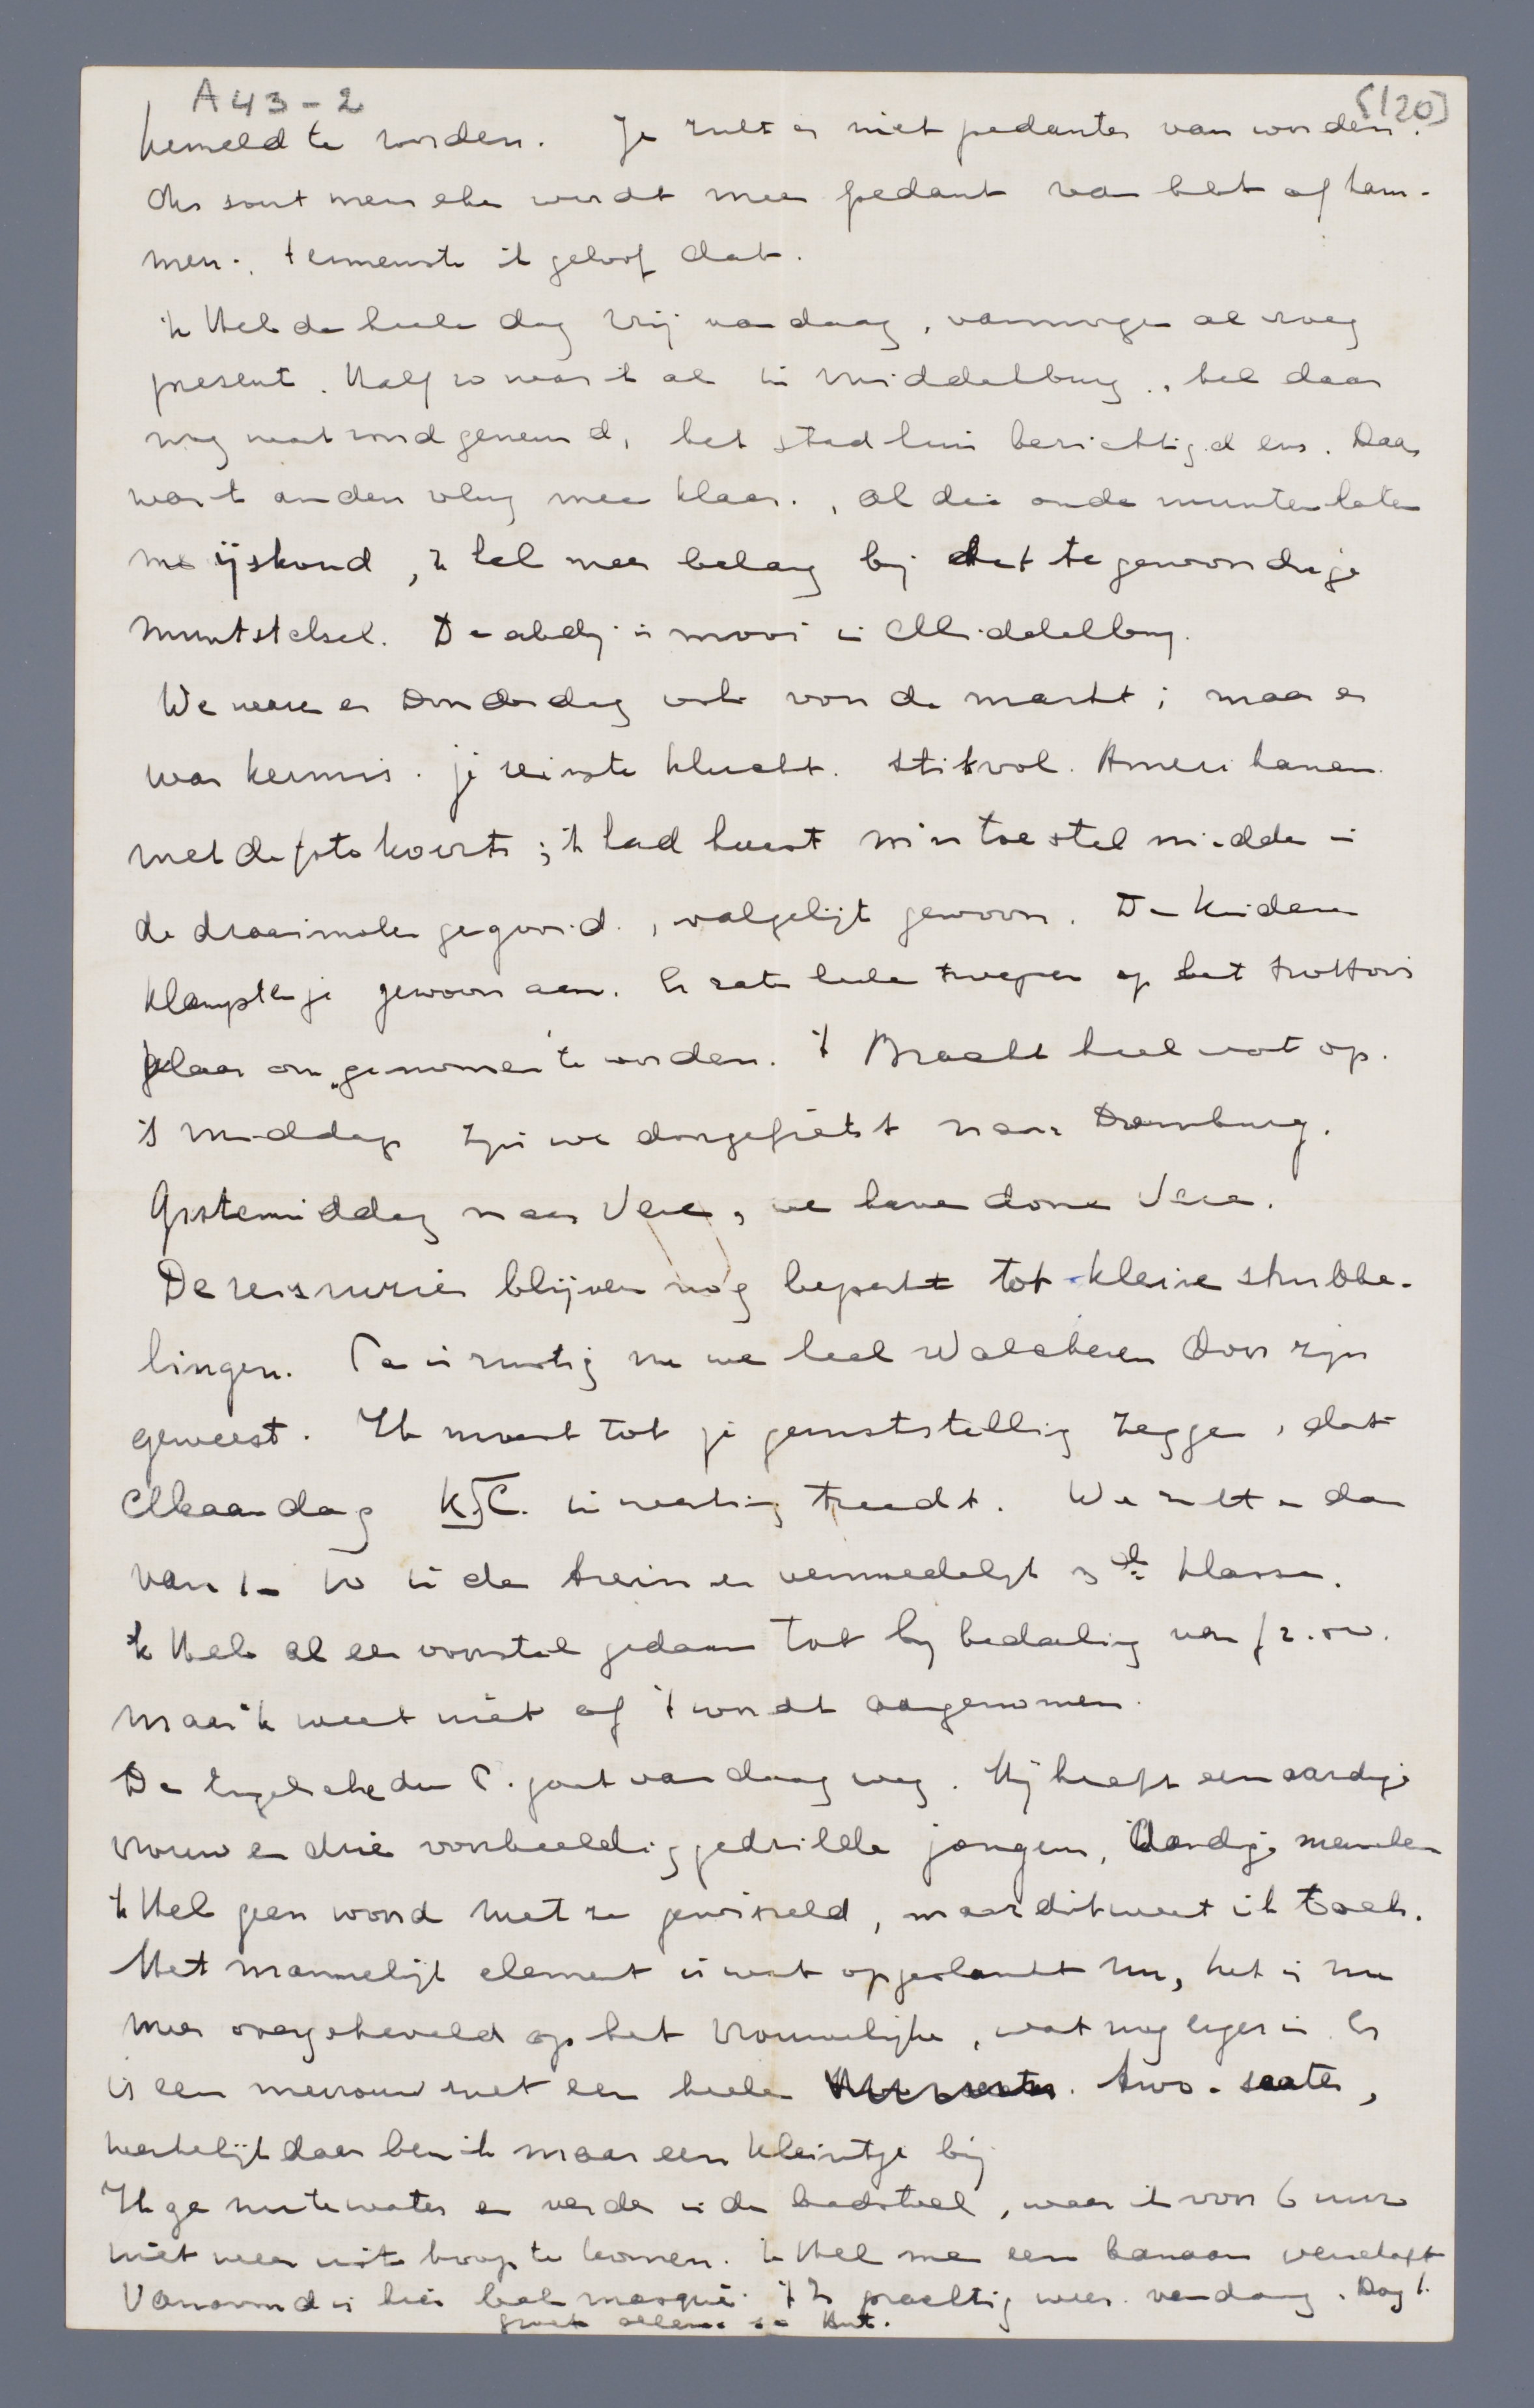 A43-2
[120]
hemeld te worden. Je zult er niet pedanter van worden.
Ons sout menschen wordt meer pedant van het afkam-
men., tenminste ik geloof dat.
ik Heb de heele dag vrij vandaag, vanmorgen al vroeg
present. Half 10 was ik al in Middelburg., heb daar
nog wat rond geneusd, het stadhuis bezichtigd enz. Daar
was ik anders vlug mee klaar., al die oude munten laten
me ijskoud, ik heb meer belang bij het tegenwoordige
muntstelsel. De abdij is mooi in Middelburg.
We waren er Donderdag ook voor de markt; maar er
was kermis. je reinste klucht. stikvol. Amerikanen
met de foto koorts; ik had haast m'n toestel midden in
de draaimolen gegooid., walgelijk gewoon. De kinderen
klampten je gewoon aan. Er zaten heele troepen op het trottoir
klaar om "genomen te worden. 't Bracht heel wat op.
's Middags zijn we doorgefietst naar Domburg.
Gistermiddag naar Vere, we have done Vere.
De reisruzies blijven nog beperkt tot kleine strubbe-
lingen. Pa is rustig nu we heel Walcheren door zijn
geweest. Ik moet tot je geruststelling zeggen, dat
Maandag K.J.C. in werking treedt. We zitten dan
van 1 - 10 in de trein en vermoedelijk 3de klasse.
ik Heb al een voorstel gedaan tot bijbedeeling van f 2.50.
maar ik weet niet of 't wordt aangenomen.
De Engelsche den P. gaat vandaag weg. Hij heeft een aardige
vrouw en drie voorbeeldig gedrilde jongens, Aardige menschen
ik Heb geen woord met ze gewisseld, maar dit weet ik toch.
Het mannelijk element is wat opgeslankt nu, het is nu
meer overgeheveld op het vrouwelijke, wat nog erger is. Er
is een mevrouw met een heele two-seater,
werkelijk daar ben ik maar een kleintje bij
Ik ga nu te water en verder in de badstoel, waar ik voor 6 uur
niet weer uit hoop te komen. ik Heb me een banaan verschaft
Vanavond is hier bal masqué. 't Is prachtig weer vandaag. Dag!.
groet allen.